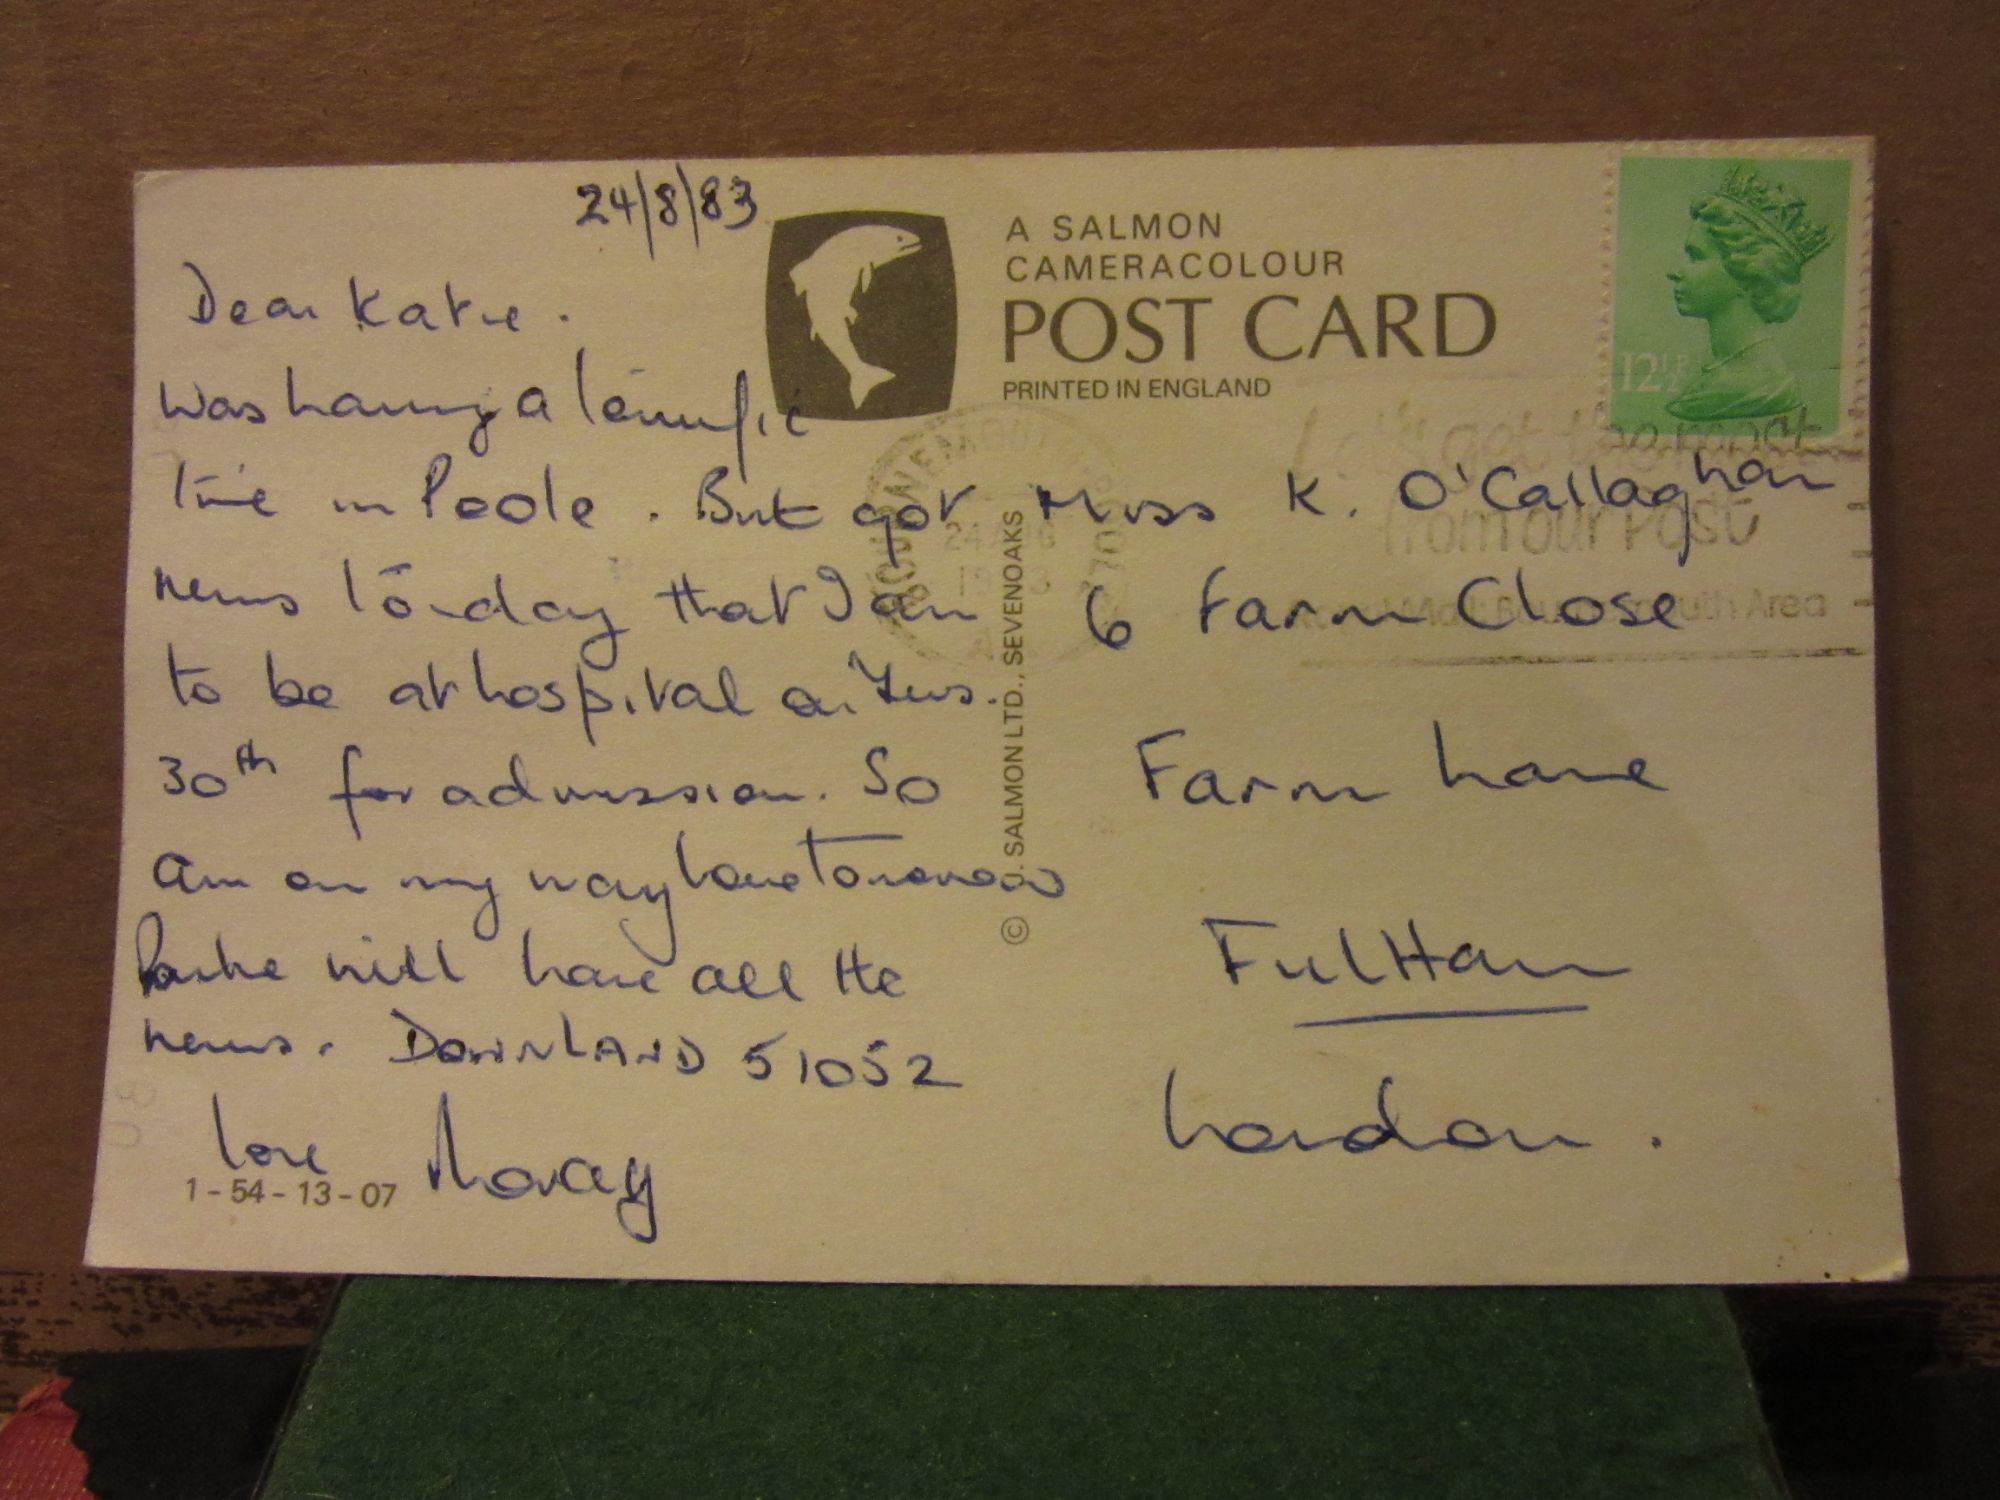 24/8/83
Dear Katie.
Was having a terrific
time in Poole. But got
news to-day that I am
to be at hospital on Tues.
30th for admission. So
am on my way home tomorrow
will have all the
news. DOWNLAND 51052
love
1-54-13-07
A SALMON
CAMERACOLOUR
POST CARD
PRINTED IN ENGLAND
© SALMON LTD., SEVENOAKS
12½P
Let's get the most
from our Post
Miss K. O'Callaghan
6 Farm Close
Farm Lane
FulHam
London.